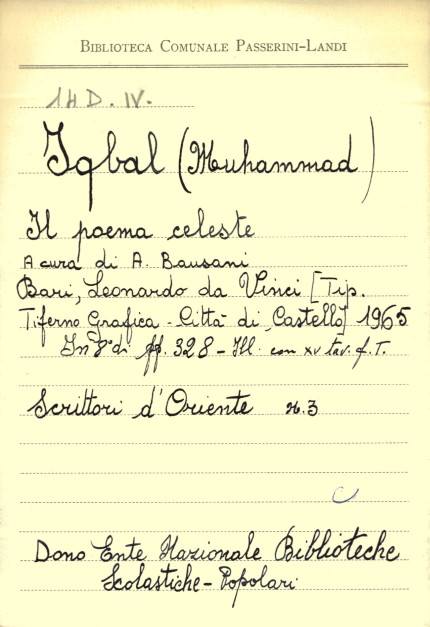 BIBLIOTECA COMUNALE PASSERINI-LANDI
14 D. IV.
Iqbal (Muhammad)
Il poema celeste
A cura di A. Bausani
Bari, Leonardo da Vinci [Tip.
Tiferno Grafica - Città di Castello] 1965
In 8° di ff. 328 - Ill. con XV tav. f. T.
Scrittori d'Oriente n. 3
Dono Ente Nazionale Biblioteche
Scolastiche - Popolari